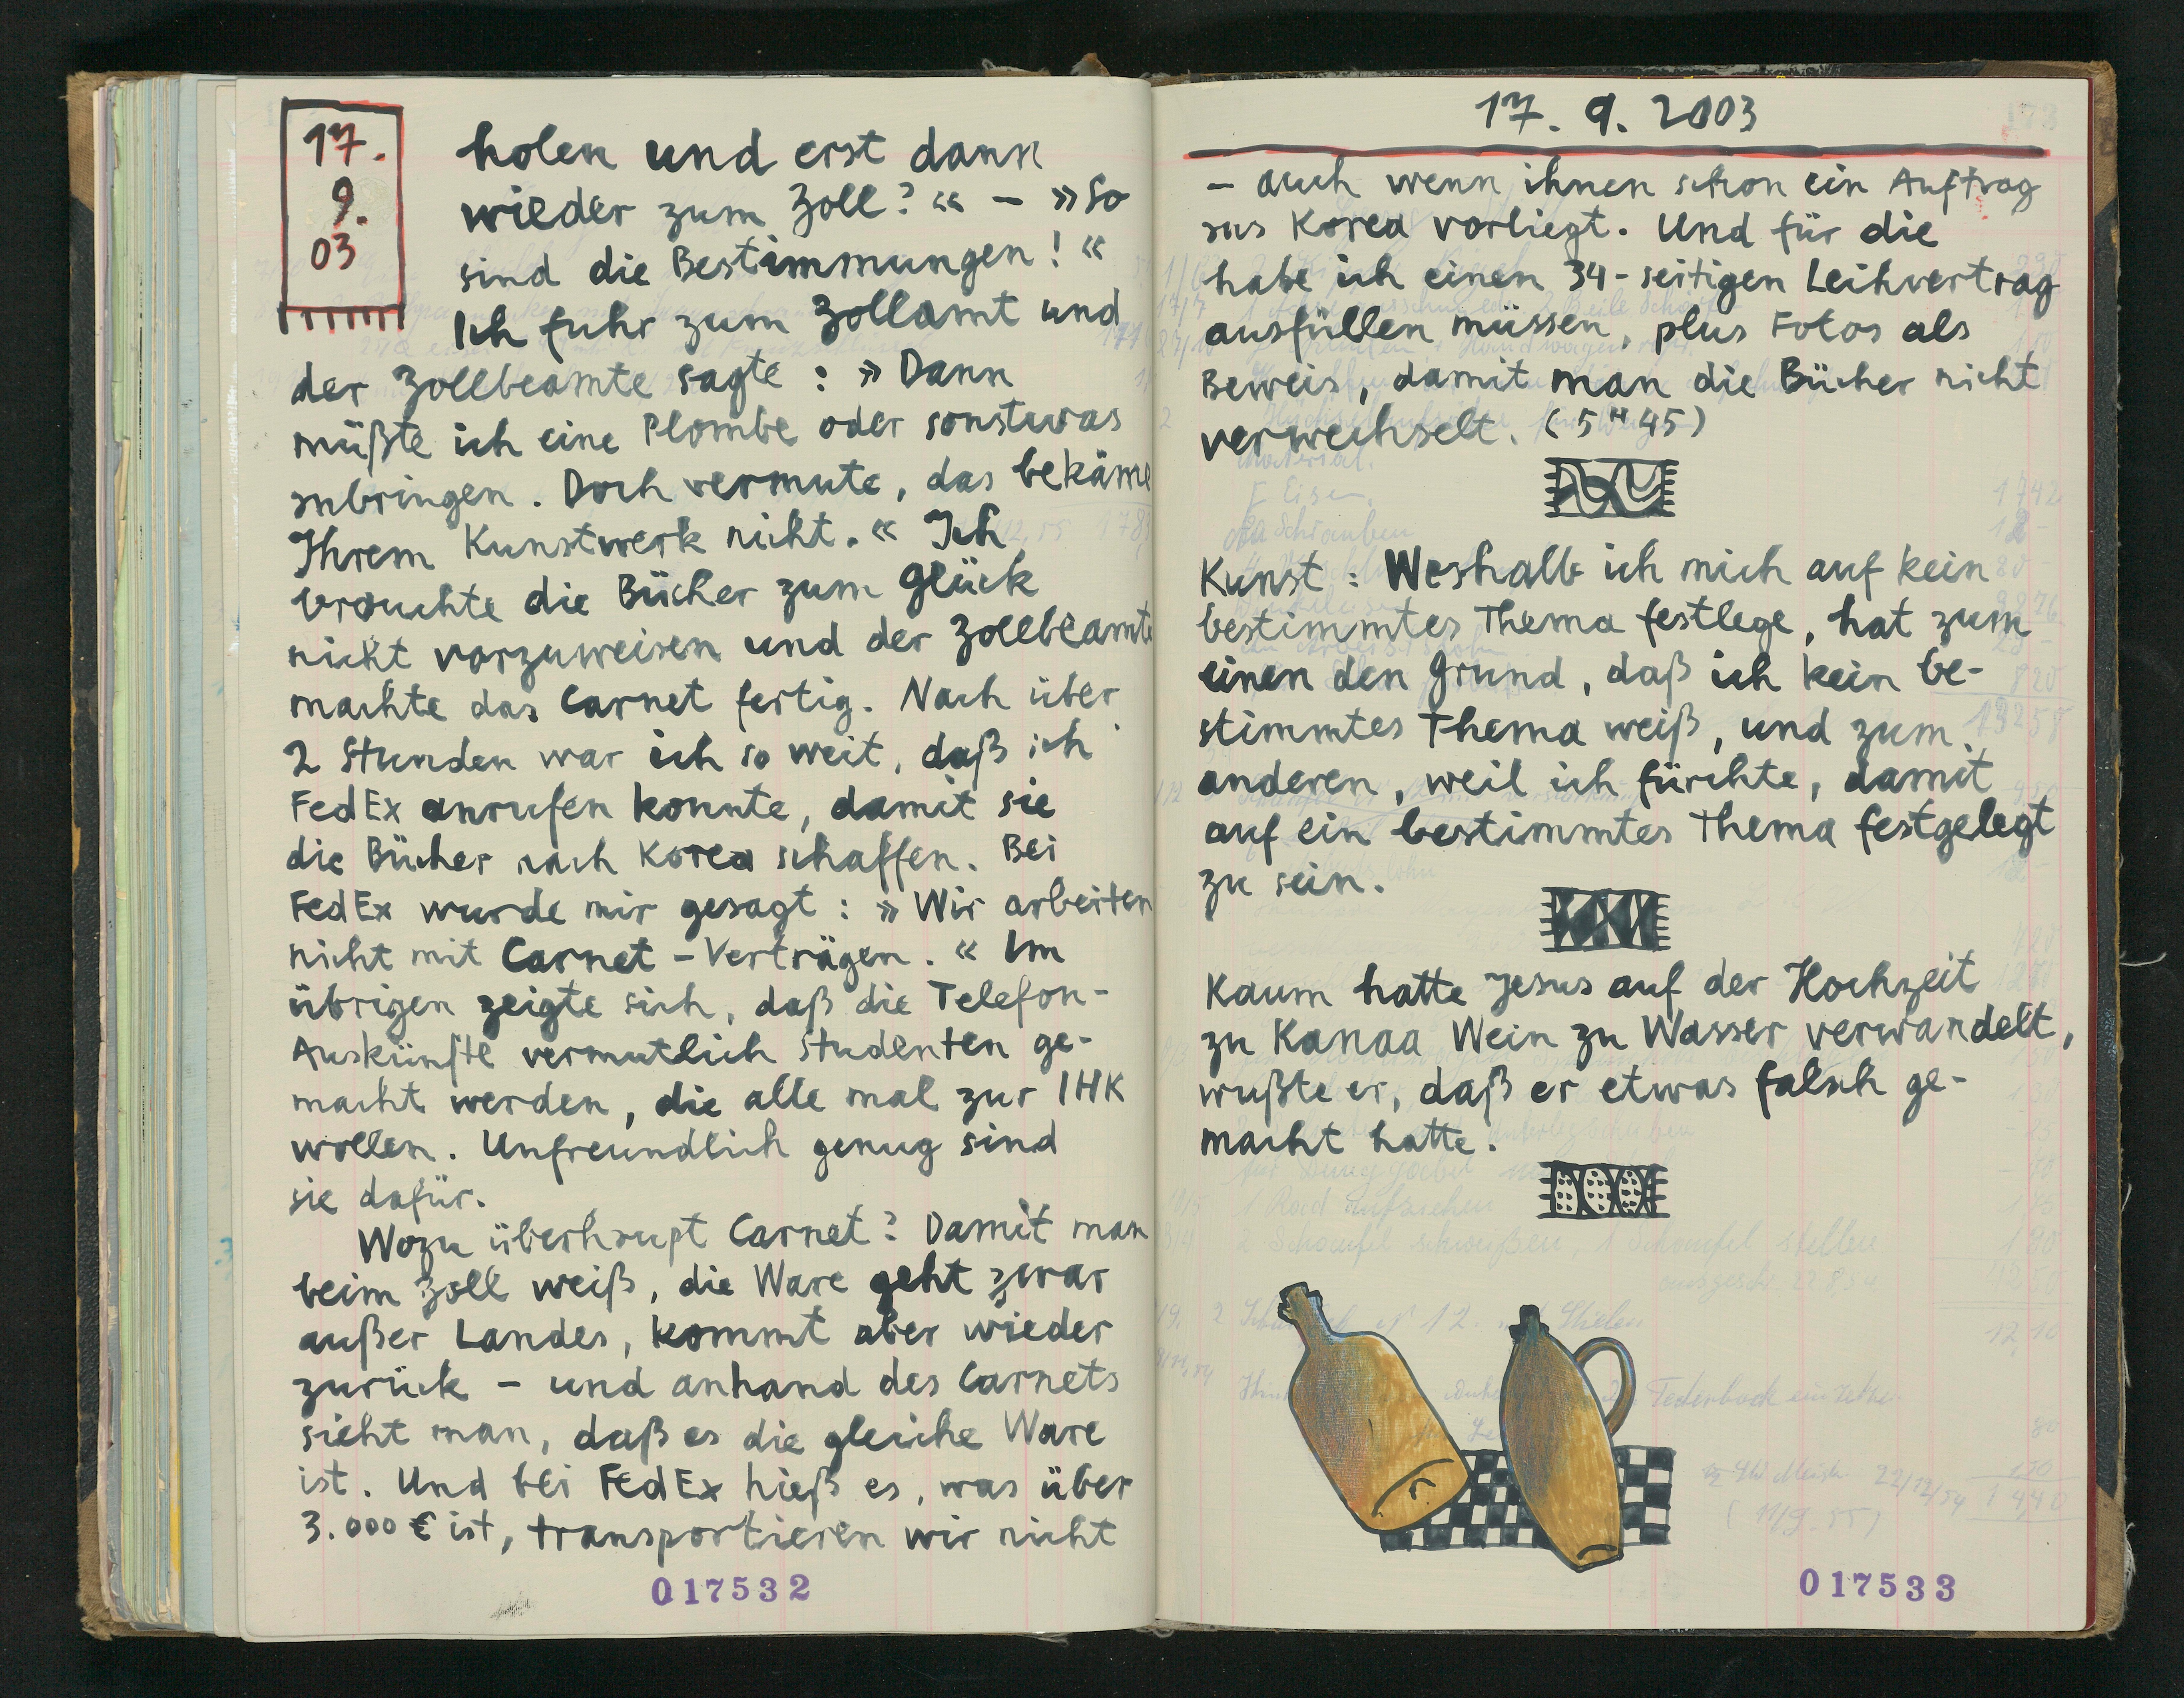 17.
9.
03
holen und erst dann
wieder zum Zoll?« – »So
sind die Bestimmungen!«
Ich fuhr zum Zollamt und
der Zollbeamte sagte: »Dann
müßte ich eine Plombe oder sonstwas
anbringen. Doch vermute, das bekäme
Ihrem Kunstwerk nicht.« Ich
brauchte die Bücher zum Glück
nicht vorzuweisen und der Zollbeamte
machte das Carnet fertig. Nach über
2 Stunden war ich so weit, daß ich
FedEx anrufen konnte, damit sie
die Bücher nach Korea schaffen. Bei
FedEx wurde mir gesagt: »Wir arbeiten
nicht mit Carnet-Verträgen.« Im
übrigen zeigte sich, daß die Telefon-
Auskünfte vermutlich Studenten ge-
macht werden, die alle mal zur IHK
wollen. Unfreundlich genug sind
sie dafür.
Wozu überhaupt Carnet? Damit man
beim Zoll weiß, die Ware geht zwar
außer Landes, kommt aber wieder
zurück – und anhand des Carnets
sieht man, daß es die gleiche Ware
ist. Und bei FedEx hieß es, was über
3.000 € ist, transportieren wir nicht
017532
17. 9. 2003
– auch wenn ihnen schon ein Auftrag
aus Korea vorliegt. Und für die
habe ich einen 34-seitigen Leihvertrag
ausfüllen müssen, plus Fotos als
Beweis, damit man die Bücher nicht
verwechselt. (5 H 45)
Kunst: Weshalb ich mich auf kein
bestimmtes Thema festlege, hat zum
einen den Grund, daß ich kein be-
stimmtes Thema weiß, und zum
anderen, weil ich fürchte, damit
auf ein bestimmtes Thema festgelegt
zu sein.
Kaum hatte Jesus auf der Hochzeit
zu Kanaa Wein zu Wasser verwandelt,
wußte er, daß er etwas falsch ge-
macht hatte.
017533